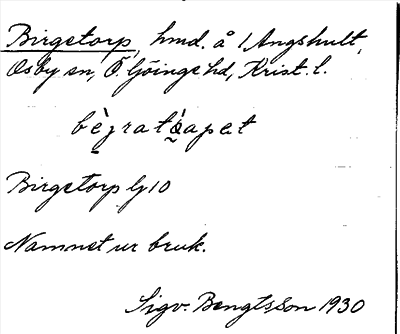 Birgetorp, hmd. å 1 Angshult,
Osby sn, Ö. Göinge hd, Krist. l.
Birgetorp Gj 10
Namnet ur bruk.
Sigv. Bengtsson 1930